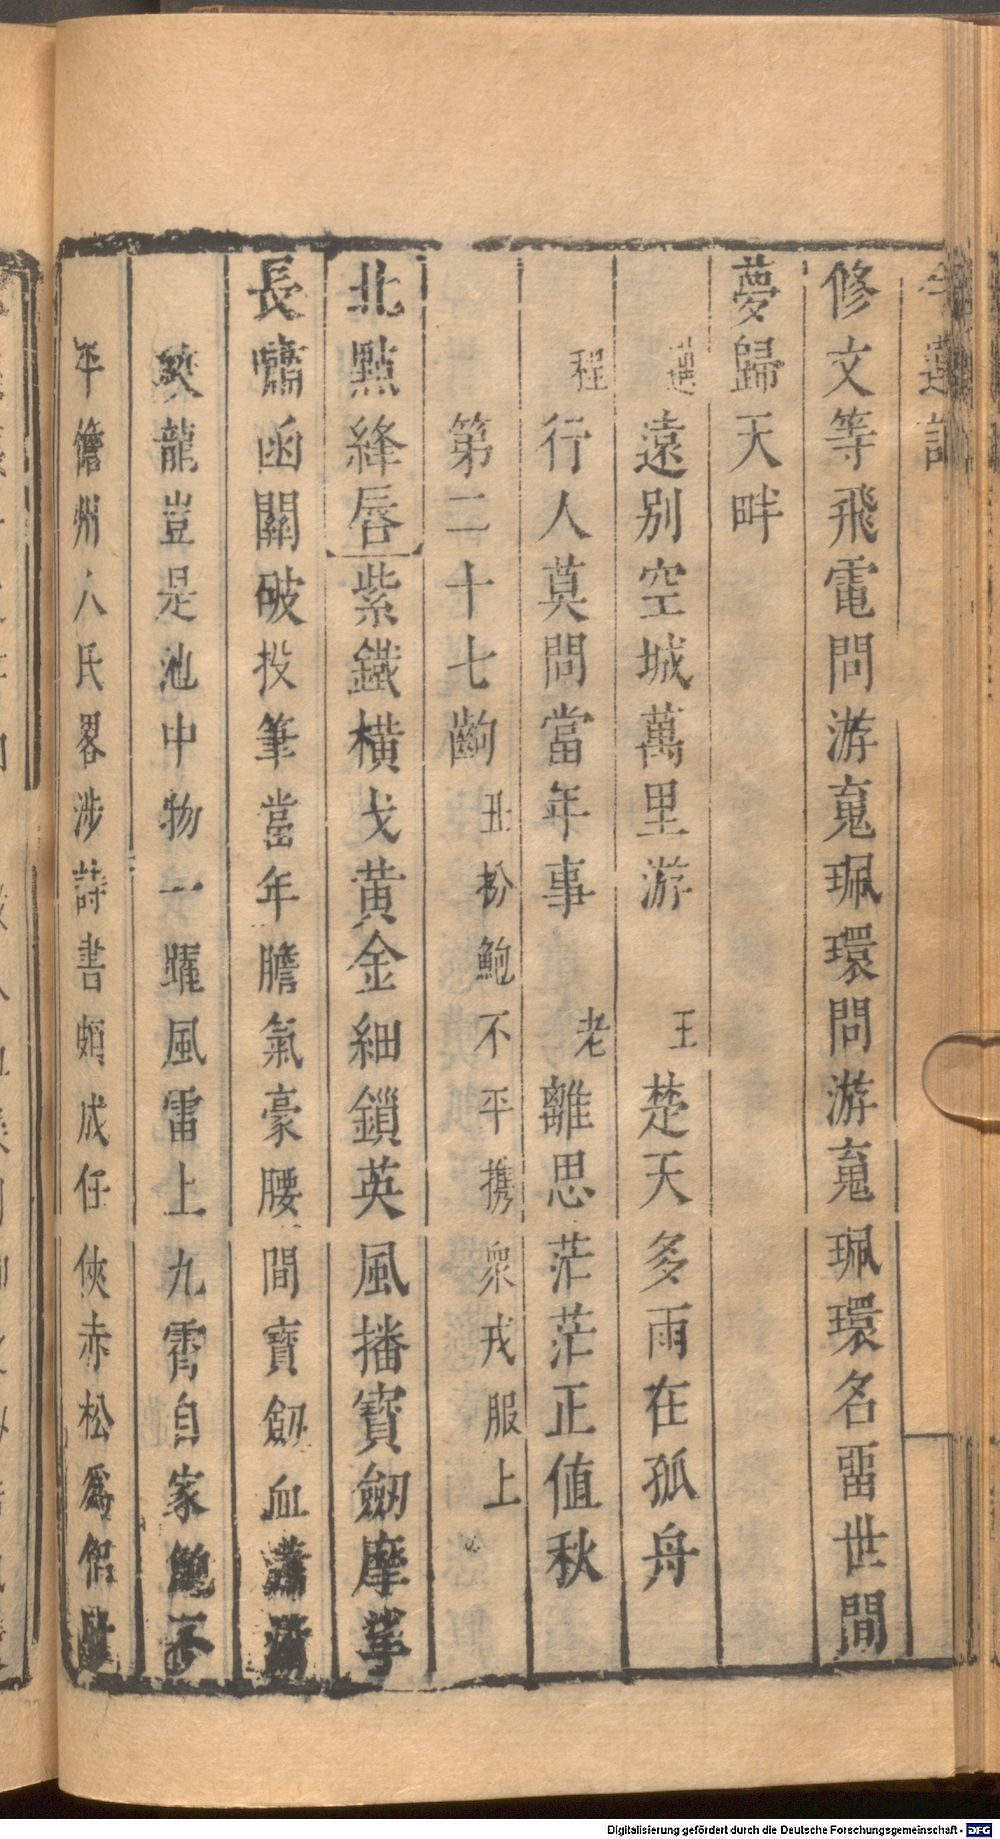 修文等飛電問游䰟珮環問游䰟珮環名畱世間
夢歸天畔
遠別空城萬里游 王 楚天多雨在孤舟
程 行人莫問當年事 老 離思茫茫正值秋
第二十七齣 丑扮鮑不平携衆戎服上
北點絳唇 紫鐵橫戈黃金細鎖英風播寶劒摩挲
長嘯函關破投筆當年膽氣豪腰間寶劒血
龍豈是池中物一躍風雷上九霄自家鮑不
平儋州人氏畧涉詩書頗成任俠赤松爲侶
Digitalisierung gefördert durch die Deutsche Forschungsgemeinschaft - DFG